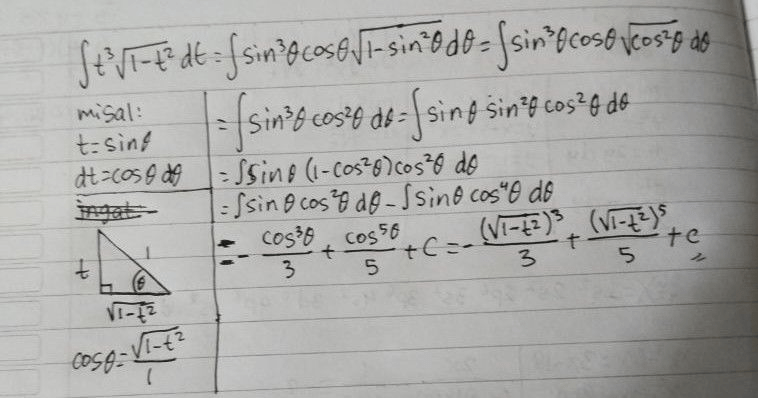 ∫t³√(1-t²) dt = ∫sin³θ cosθ √(1-sin²θ) dθ = ∫sin³θ cosθ √(cos²θ) dθ
misal:
t = sinθ
dt = cosθ dθ
ingat
t
1
θ
√(1-t²)
cosθ = √(1-t²)/1
= ∫sin³θ cos²θ dθ = ∫sinθ sin²θ cos²θ dθ
= ∫sinθ (1-cos²θ) cos²θ dθ
= ∫sinθ cos²θ dθ - ∫sinθ cos⁴θ dθ
= - cos³θ/3 + cos⁵θ/5 + C = - (√(1-t²))³/3 + (√(1-t²))⁵/5 + C